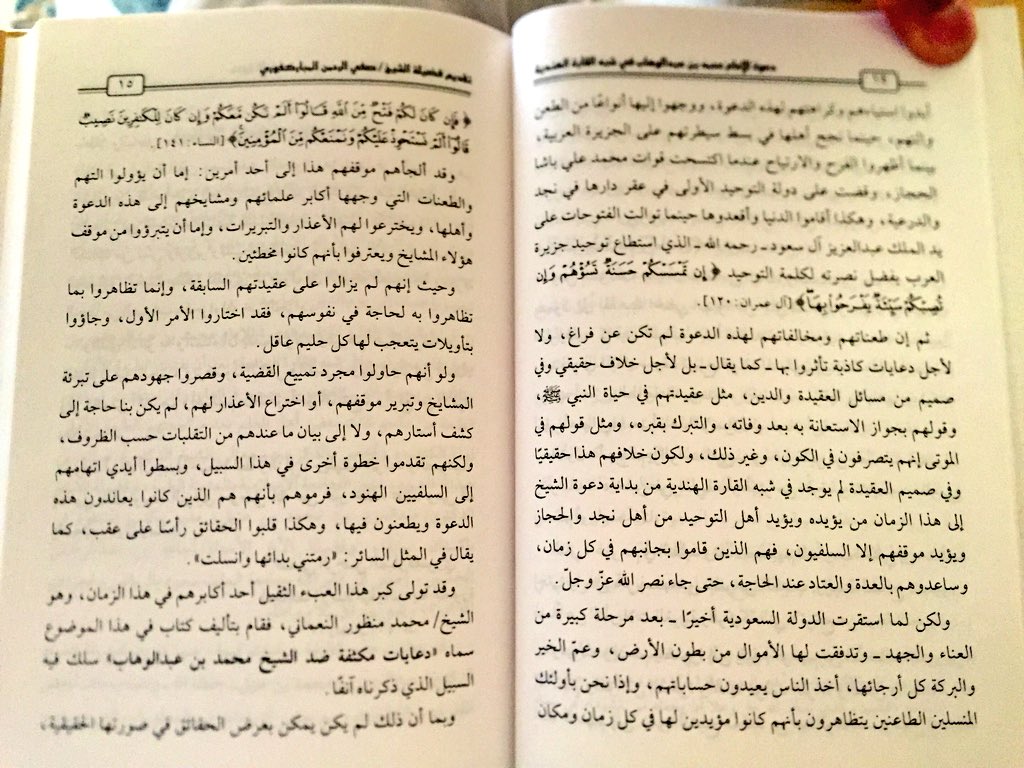 ١٤
دعوة الإمام محمد بن عبدالوهاب في شبه القارة الهندية
أبدوا استياءهم وكراهتهم لهذه الدعوة، ووجهوا إليها أنواعًا من الطعن
والتهم، حينما نجح أهلها في بسط سيطرتهم على الجزيرة العربية،
بينما أظهروا الفرح والارتياح عندما اكتسحت قوات محمد علي باشا
الحجاز، وقضت على دولة التوحيد الأولى في عقر دارها في نجد
والدرعية، وهكذا أقاموا الدنيا وأقعدوها حينما توالت الفتوحات على
يد الملك عبدالعزيز آل سعود ـ رحمه الله ـ الذي استطاع توحيد جزيرة
العرب بفضل نصرته لكلمة التوحيد ﴿إِن تَمْسَسْكُمْ حَسَنَةٌ تَسُؤْهُمْ وَإِن
تُصِبْكُمْ سَيِّئَةٌ يَفْرَحُوا بِهَا﴾ [آل عمران: ١٢٠].
ثم إن طعناتهم ومخالفاتهم لهذه الدعوة لم تكن عن فراغ، ولا
لأجل دعايات كاذبة تأثروا بها ـ كما يقال ـ بل لأجل خلاف حقيقي وفي
صميم من مسائل العقيدة والدين، مثل عقيدتهم في حياة النبي ﷺ،
وقولهم بجواز الاستعانة به بعد وفاته، والتبرك بقبره، ومثل قولهم في
الموتى إنهم يتصرفون في الكون، وغير ذلك، ولكون خلافهم هذا حقيقيًا
وفي صميم العقيدة لم يوجد في شبه القارة الهندية من بداية دعوة الشيخ
إلى هذا الزمان من يؤيده ويؤيد أهل التوحيد من أهل نجد والحجاز
ويؤيد موقفهم إلا السلفيون، فهم الذين قاموا بجانبهم في كل زمان،
وساعدوهم بالعدة والعتاد عند الحاجة، حتى جاء نصر الله عزّ وجلّ.
ولكن لما استقرت الدولة السعودية أخيرًا ـ بعد مرحلة كبيرة من
العناء والجهد ـ وتدفقت لها الأموال من بطون الأرض، وعمّ الخير
والبركة كل أرجائها، أخذ الناس يعيدون حساباتهم، وإذا نحن بأولئك
المنسلين الطاعنين يتظاهرون بأنهم كانوا مؤيدين لها في كل زمان ومكان
تقديم فضيلة الشيخ/ صفي الرحمن المباركفوري
١٥
﴿فَإِن كَانَ لَكُمْ فَتْحٌ مِّنَ اللَّهِ قَالُوا أَلَمْ نَكُن مَّعَكُمْ وَإِن كَانَ لِلْكَافِرِينَ نَصِيبٌ
قَالُوا أَلَمْ نَسْتَحْوِذْ عَلَيْكُمْ وَنَمْنَعْكُم مِّنَ الْمُؤْمِنِينَ﴾ [النساء: ١٤١].
وقد ألجأهم موقفهم هذا إلى أحد أمرين: إما أن يؤولوا التهم
والطعنات التي وجهها أكابر علمائهم ومشايخهم إلى هذه الدعوة
وأهلها، ويخترعوا لهم الأعذار والتبريرات، وإما أن يتبرؤوا من موقف
هؤلاء المشايخ ويعترفوا بأنهم كانوا مخطئين.
وحيث إنهم لم يزالوا على عقيدتهم السابقة، وإنما تظاهروا بما
تظاهروا به لحاجة في نفوسهم، فقد اختاروا الأمر الأول، وجاؤوا
بتأويلات يتعجب لها كل حليم عاقل.
ولو أنهم حاولوا مجرد تمييع القضية، وقصروا جهودهم على تبرئة
المشايخ وتبرير موقفهم، أو اختراع الأعذار لهم، لم يكن بنا حاجة إلى
كشف أستارهم، ولا إلى بيان ما عندهم من التقلبات حسب الظروف،
ولكنهم تقدموا خطوة أخرى في هذا السبيل، وبسطوا أيدي اتهامهم
إلى السلفيين الهنود، فرموهم بأنهم هم الذين كانوا يعاندون هذه
الدعوة ويطعنون فيها، وهكذا قلبوا الحقائق رأسًا على عقب، كما
يقال في المثل السائر: «رمتني بدائها وانسلت».
وقد تولى كبر هذا العبء الثقيل أحد أكابرهم في هذا الزمان، وهو
الشيخ/ محمد منظور النعماني، فقام بتأليف كتاب في هذا الموضوع
سماه «دعايات مكثفة ضد الشيخ محمد بن عبدالوهاب» سلك فيه
السبيل الذي ذكرناه آنفًا.
وبما أن ذلك لم يكن يمكن بعرض الحقائق في صورتها الحقيقية،